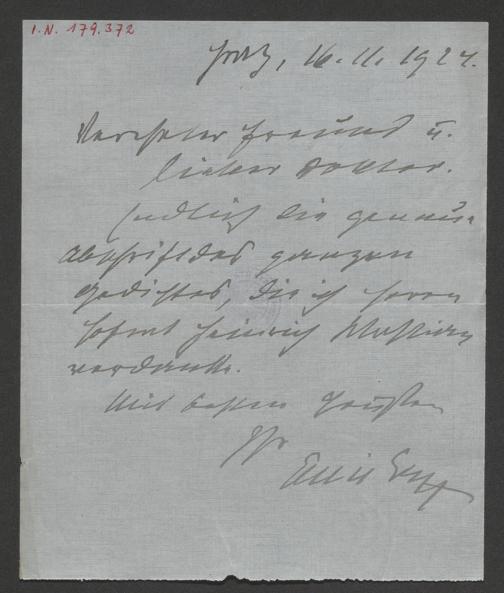 I.N. 179.372
Graz, 16. 11. 1924.
Verehrter Freund u.
lieber Doktor.
Endlich die genaue
Abschrift des ganzen
Gedichtes, die ich Herrn
Hofrat Heinrich
verdanke.
Mit besten Grüßen
Ihr